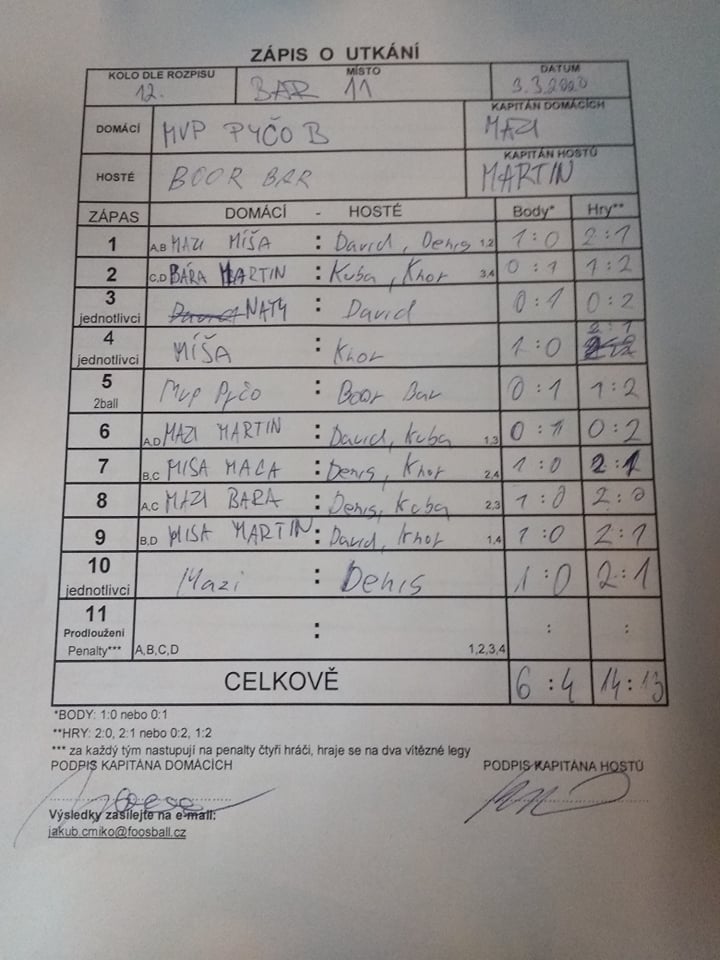 ZÁPIS O UTKÁNÍ
KOLO DLE ROZPISU MÍSTO DATUM
12. BAR 11 3.3.2020
DOMÁCÍ MVP PYČO B KAPITÁN DOMÁCÍCH MAZI
HOSTÉ BOOR BAR KAPITÁN HOSTŮ MARTIN
ZÁPAS DOMÁCÍ - HOSTÉ Body* Hry**
1 A,B MAZI MÍŠA : David, Denis 1,2 1:0 2:1
2 C,D BÁRA MARTIN : Kuba, Khor 3,4 0:1 1:2
3 jednotlivci NATY : David 0:1 0:2
4 jednotlivci MÍŠA : Khor 1:0 2:1
5 2ball Mvp Pyčo : Boor Bar 0:1 1:2
6 A,D MAZI MARTIN : David, Kuba 1,3 0:1 0:2
7 B,C MISA MACA : Denis, Khor 2,4 1:0 2:1
8 A,C MAZI BARA : Denis, Kuba 2,3 1:0 2:0
9 B,D MISA MARTIN : David, Khor 1,4 1:0 2:1
10 jednotlivci Mazi : Denis 1:0 2:1
11 Prodloužení Penalty*** A,B,C,D : 1,2,3,4 : :
CELKOVĚ 6:4 14:13
*BODY: 1:0 nebo 0:1
**HRY: 2:0, 2:1 nebo 0:2, 1:2
*** za každý tým nastupují na penalty čtyři hráči, hraje se na dva vítězné legy
PODPIS KAPITÁNA DOMÁCÍCH PODPIS KAPITÁNA HOSTŮ
Výsledky zasílejte na e-mail:
jakub.cmiko@foosball.cz